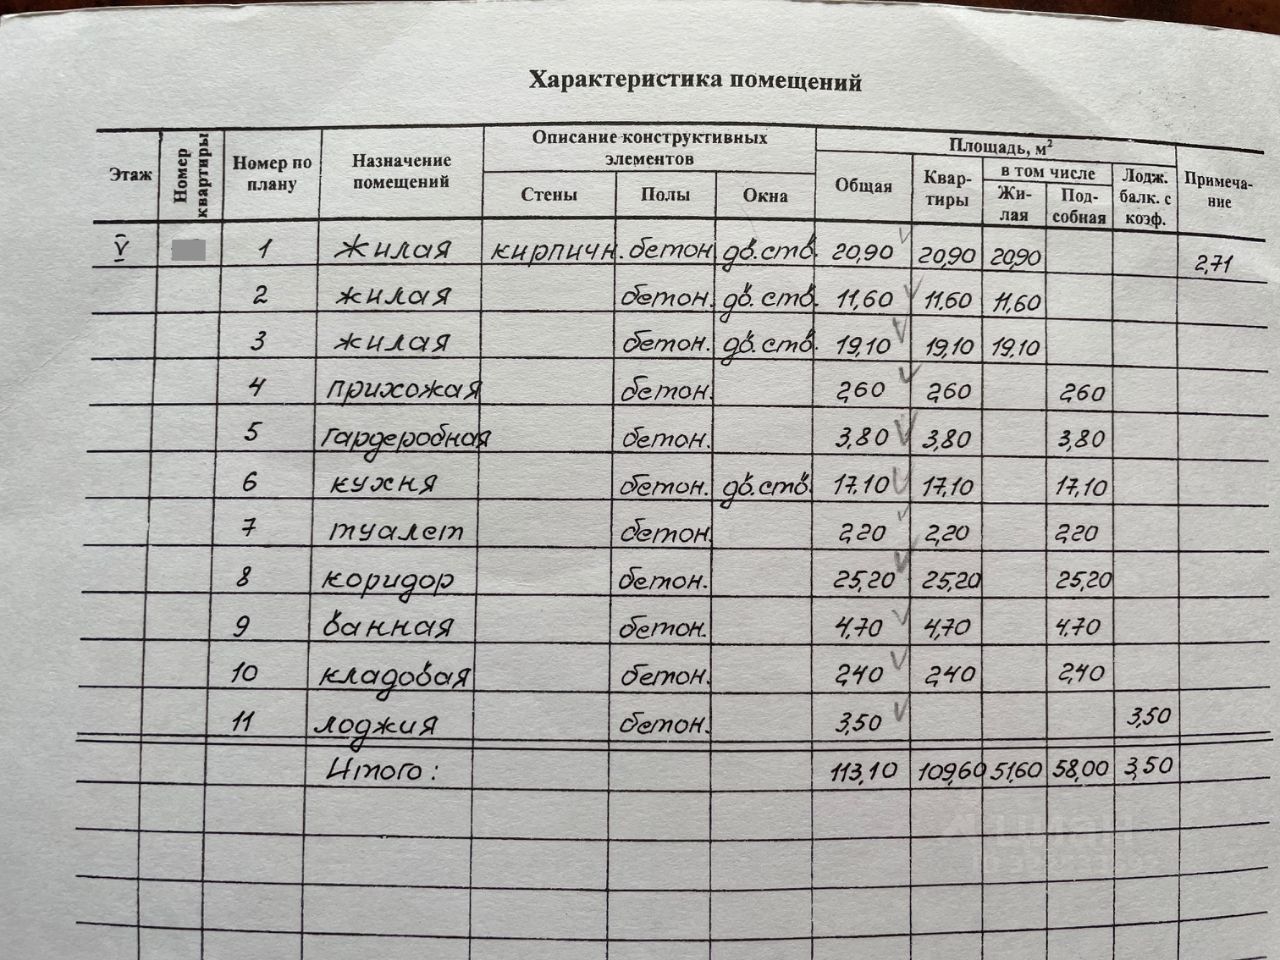 Характеристика помещений
Этаж Номер квартиры Номер по плану Назначение помещений Описание конструктивных элементов Площадь, м² Примеча-ние
Стены Полы Окна Общая Квар-тиры в том числе Лодж. балк. с коэф.
Жи-лая Под-собная
V 1 жилая кирпичн. бетон дв.ств. 20,90 20,90 20,90 2,71
2 жилая бетон. дв.ств. 11,60 11,60 11,60
3 жилая бетон. дв.ств. 19,10 19,10 19,10
4 прихожая бетон. 2,60 2,60 2,60
5 гардеробная бетон. 3,80 3,80 3,80
6 кухня бетон. дв.ств. 17,10 17,10 17,10
7 туалет бетон. 2,20 2,20 2,20
8 коридор бетон. 25,20 25,20 25,20
9 ванная бетон. 4,70 4,70 4,70
10 кладовая бетон. 2,40 2,40 2,40
11 лоджия бетон. 3,50 3,50
Итого: 113,10 109,60 51,60 58,00 3,50
циан